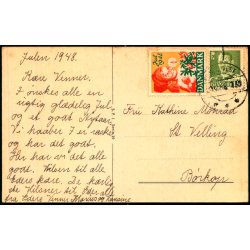 Julen 1948.
Kære Venner.
I ønskes alle en
rigtig glædelig Jul
og et godt Nytaar.
Vi haaber I er raske
og har det godt.
Her har vi det alle
godt. Hilsen til alle
Eders kære. De kærligste
Hilsener til Eder alle
fra Eders Venner Marius og
JUL
1948
DANMARK
Fru Kathine Monrad
St Velling
Børkop